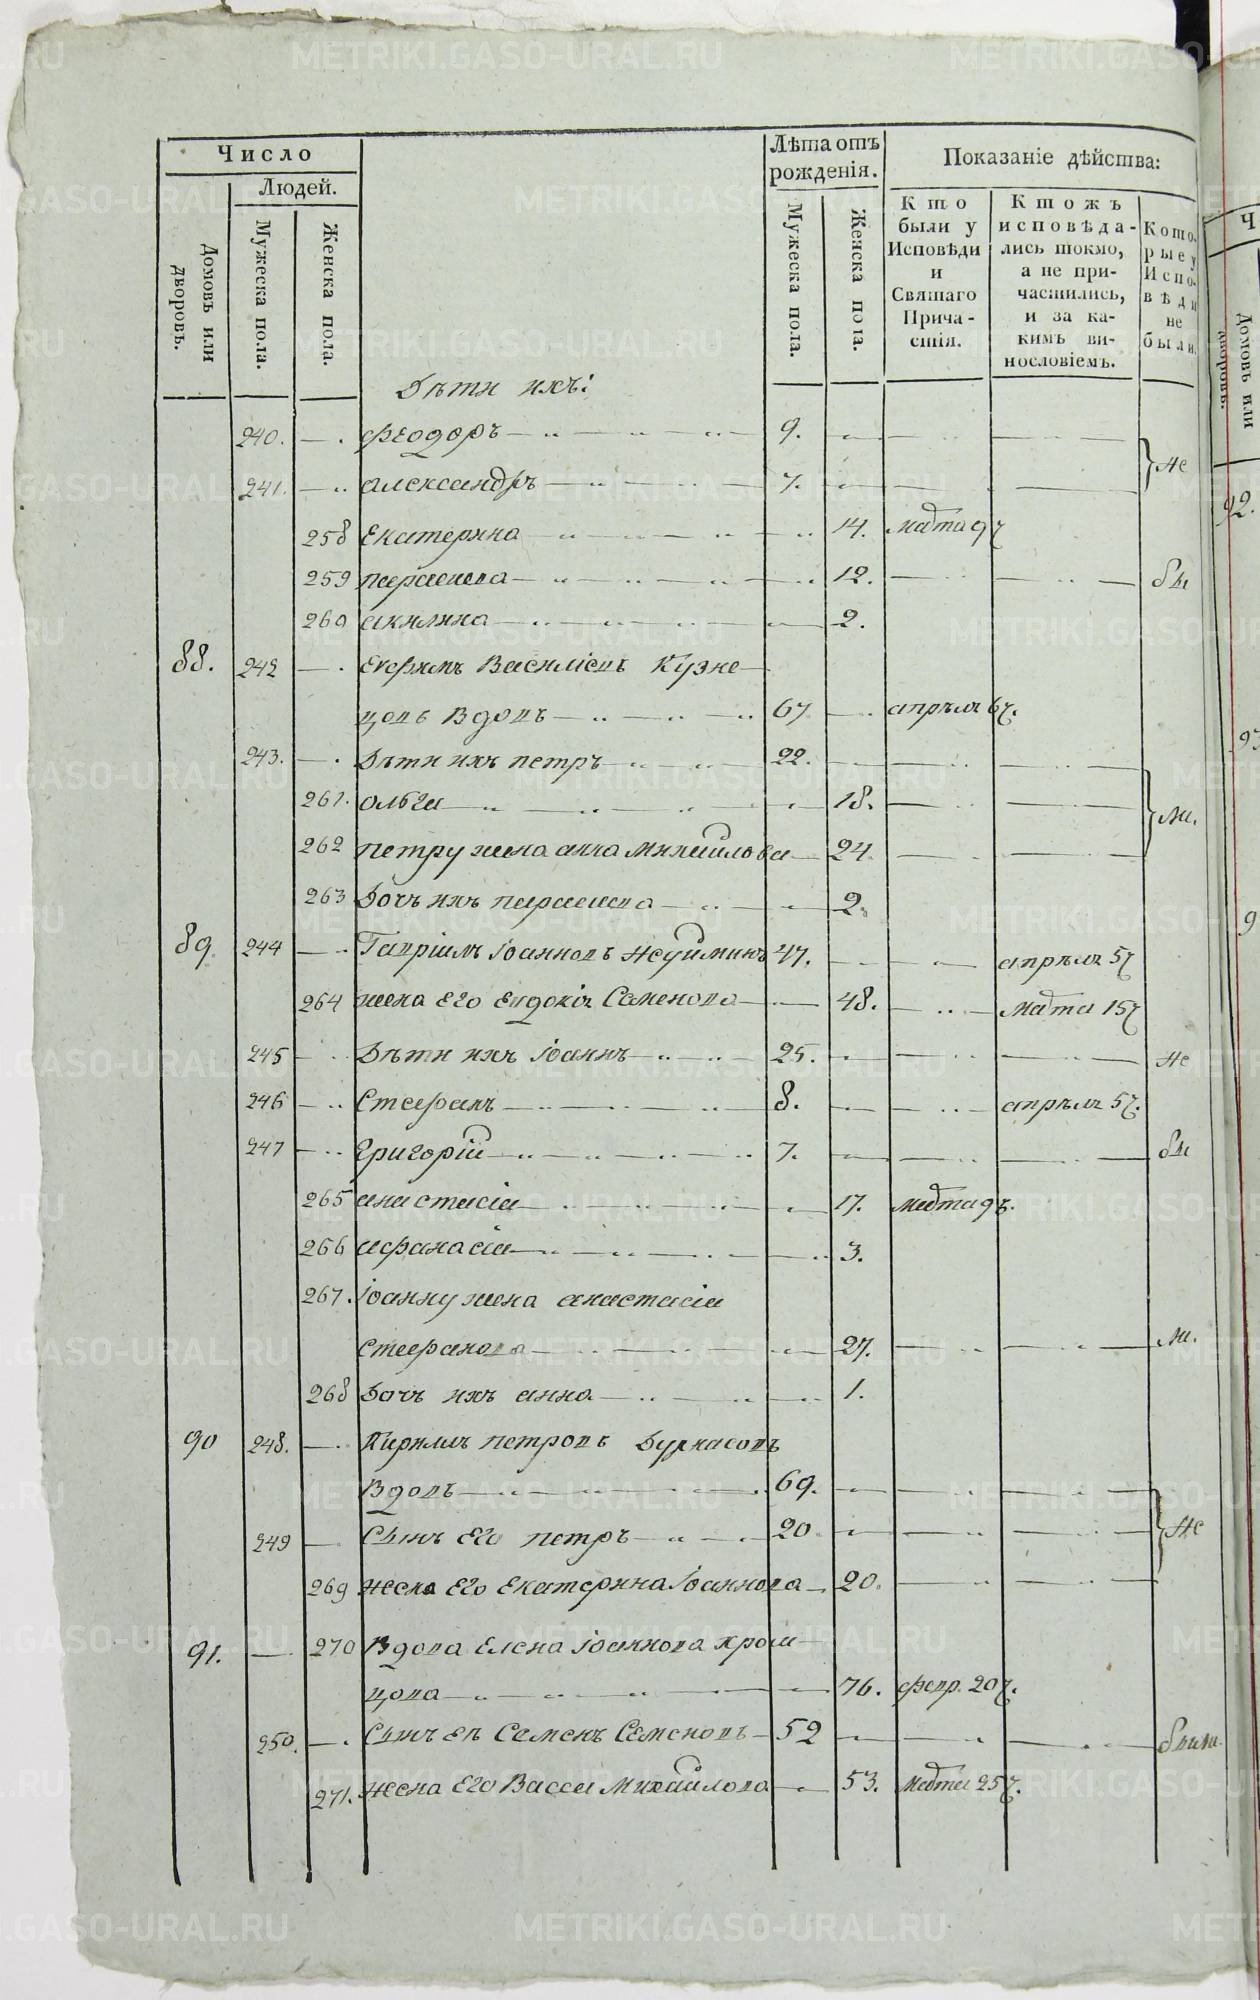 Число
Людей.
Домовъ или дворовъ.
Мужеска пола.
Женска пола.
Лѣта отъ рожденія.
Мужеска пола.
Женска пола.
Показаніе дѣйства:
Кто были у Исповѣди и Святаго Прича-стія.
Ктожъ исповѣда-лись токмо, а не при-частились, и за ка-кимъ ви-нословіемъ.
Кото-рые у Испо-вѣди не были.
Дѣти ихъ:
240. — . Феодоръ 9.
241. — .. александръ 7. не
258 Екатерина 14. марта 9 ч
259 параскева 12. бы
260 акилина 2.
88. 242 — . Ефимъ Василіевъ Кузне-
цовъ Вдовъ 67 апрѣля 6 ч.
243. — . Дѣти ихъ петръ 22.
261. ольга 18. ли.
262 петру жена анна михайлова 24
263 Дочь ихъ параскева 2.
89. 244 — .. Гавріилъ Іоанновъ 47. апрѣля 5 ч
264 жена Его Евдокія Семенова 48. марта 15 ч
245 Дѣти ихъ Іоаннъ 25. не
246 — .. Стефанъ 8. апрѣля 5 ч.
247 — .. Григорій 7. бы
265 анастасія 17. марта 9 ч.
266 афанасія 3.
267. Іоанну жена анастасія
Стефанова 27. ли.
268 Дочь ихъ анна 1.
90 248. — . Кирилъ петровъ Бурнасовъ
Вдовъ 69.
249 — Сынъ Его петръ 20 не
269 жена Его Екатерина Іоаннова 20.
91. — 270 Вдова Елена Іоаннова храм-
цова 76. февр. 20 ч.
250. — . Сынъ Ея Семенъ Семеновъ 52 были.
271. жена Его Васса Михайлова 53. марта 25 ч.
Домовъ или дворовъ.
92.
METRIKI.GASO-URAL.RU